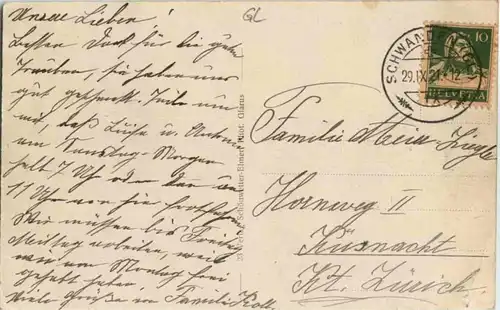 GL
Unsere Lieben!
Besten Dank für die guten
Trauben, sie haben uns
gut geschmeckt. Teile nun
mit, daß Luise u.
am Samstag-Morgen
halb 7 Uhr oder dann
11 Uhr von hier fortfahren
Wir müssen bis Freitag
Mittag arbeiten, weil
wir am Montag frei
gehabt haben.
Viele Grüße in Familie
23 Verlag Schönwetter-Elmer, Glarus
SCHWANDEN (GL)
29.IX.21.-12
10
HELVETIA
Familie
Hornweg II
Küsnacht
Kt. Zürich